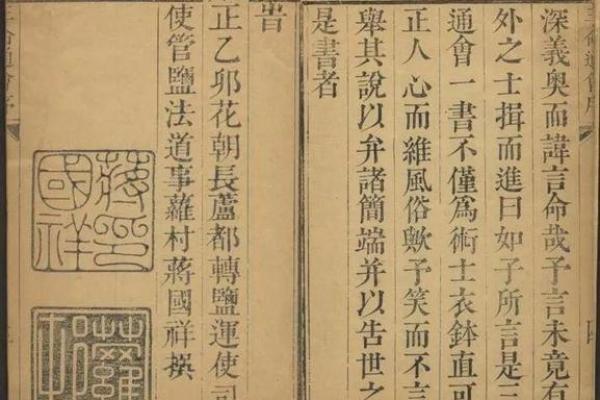 深義奧而諱言命哉予言未竟有
外之士揖而進曰如子所言是三
通會一書不僅為術士衣鉢直可
正人心而維風俗歟予笑而不言
舉其說以弁諸簡端并以告世之
是書者
正乙卯花朝長蘆都轉鹽運使司
使管鹽法道事蘿村蔣國祥撰
蔣國祥印
蘿村